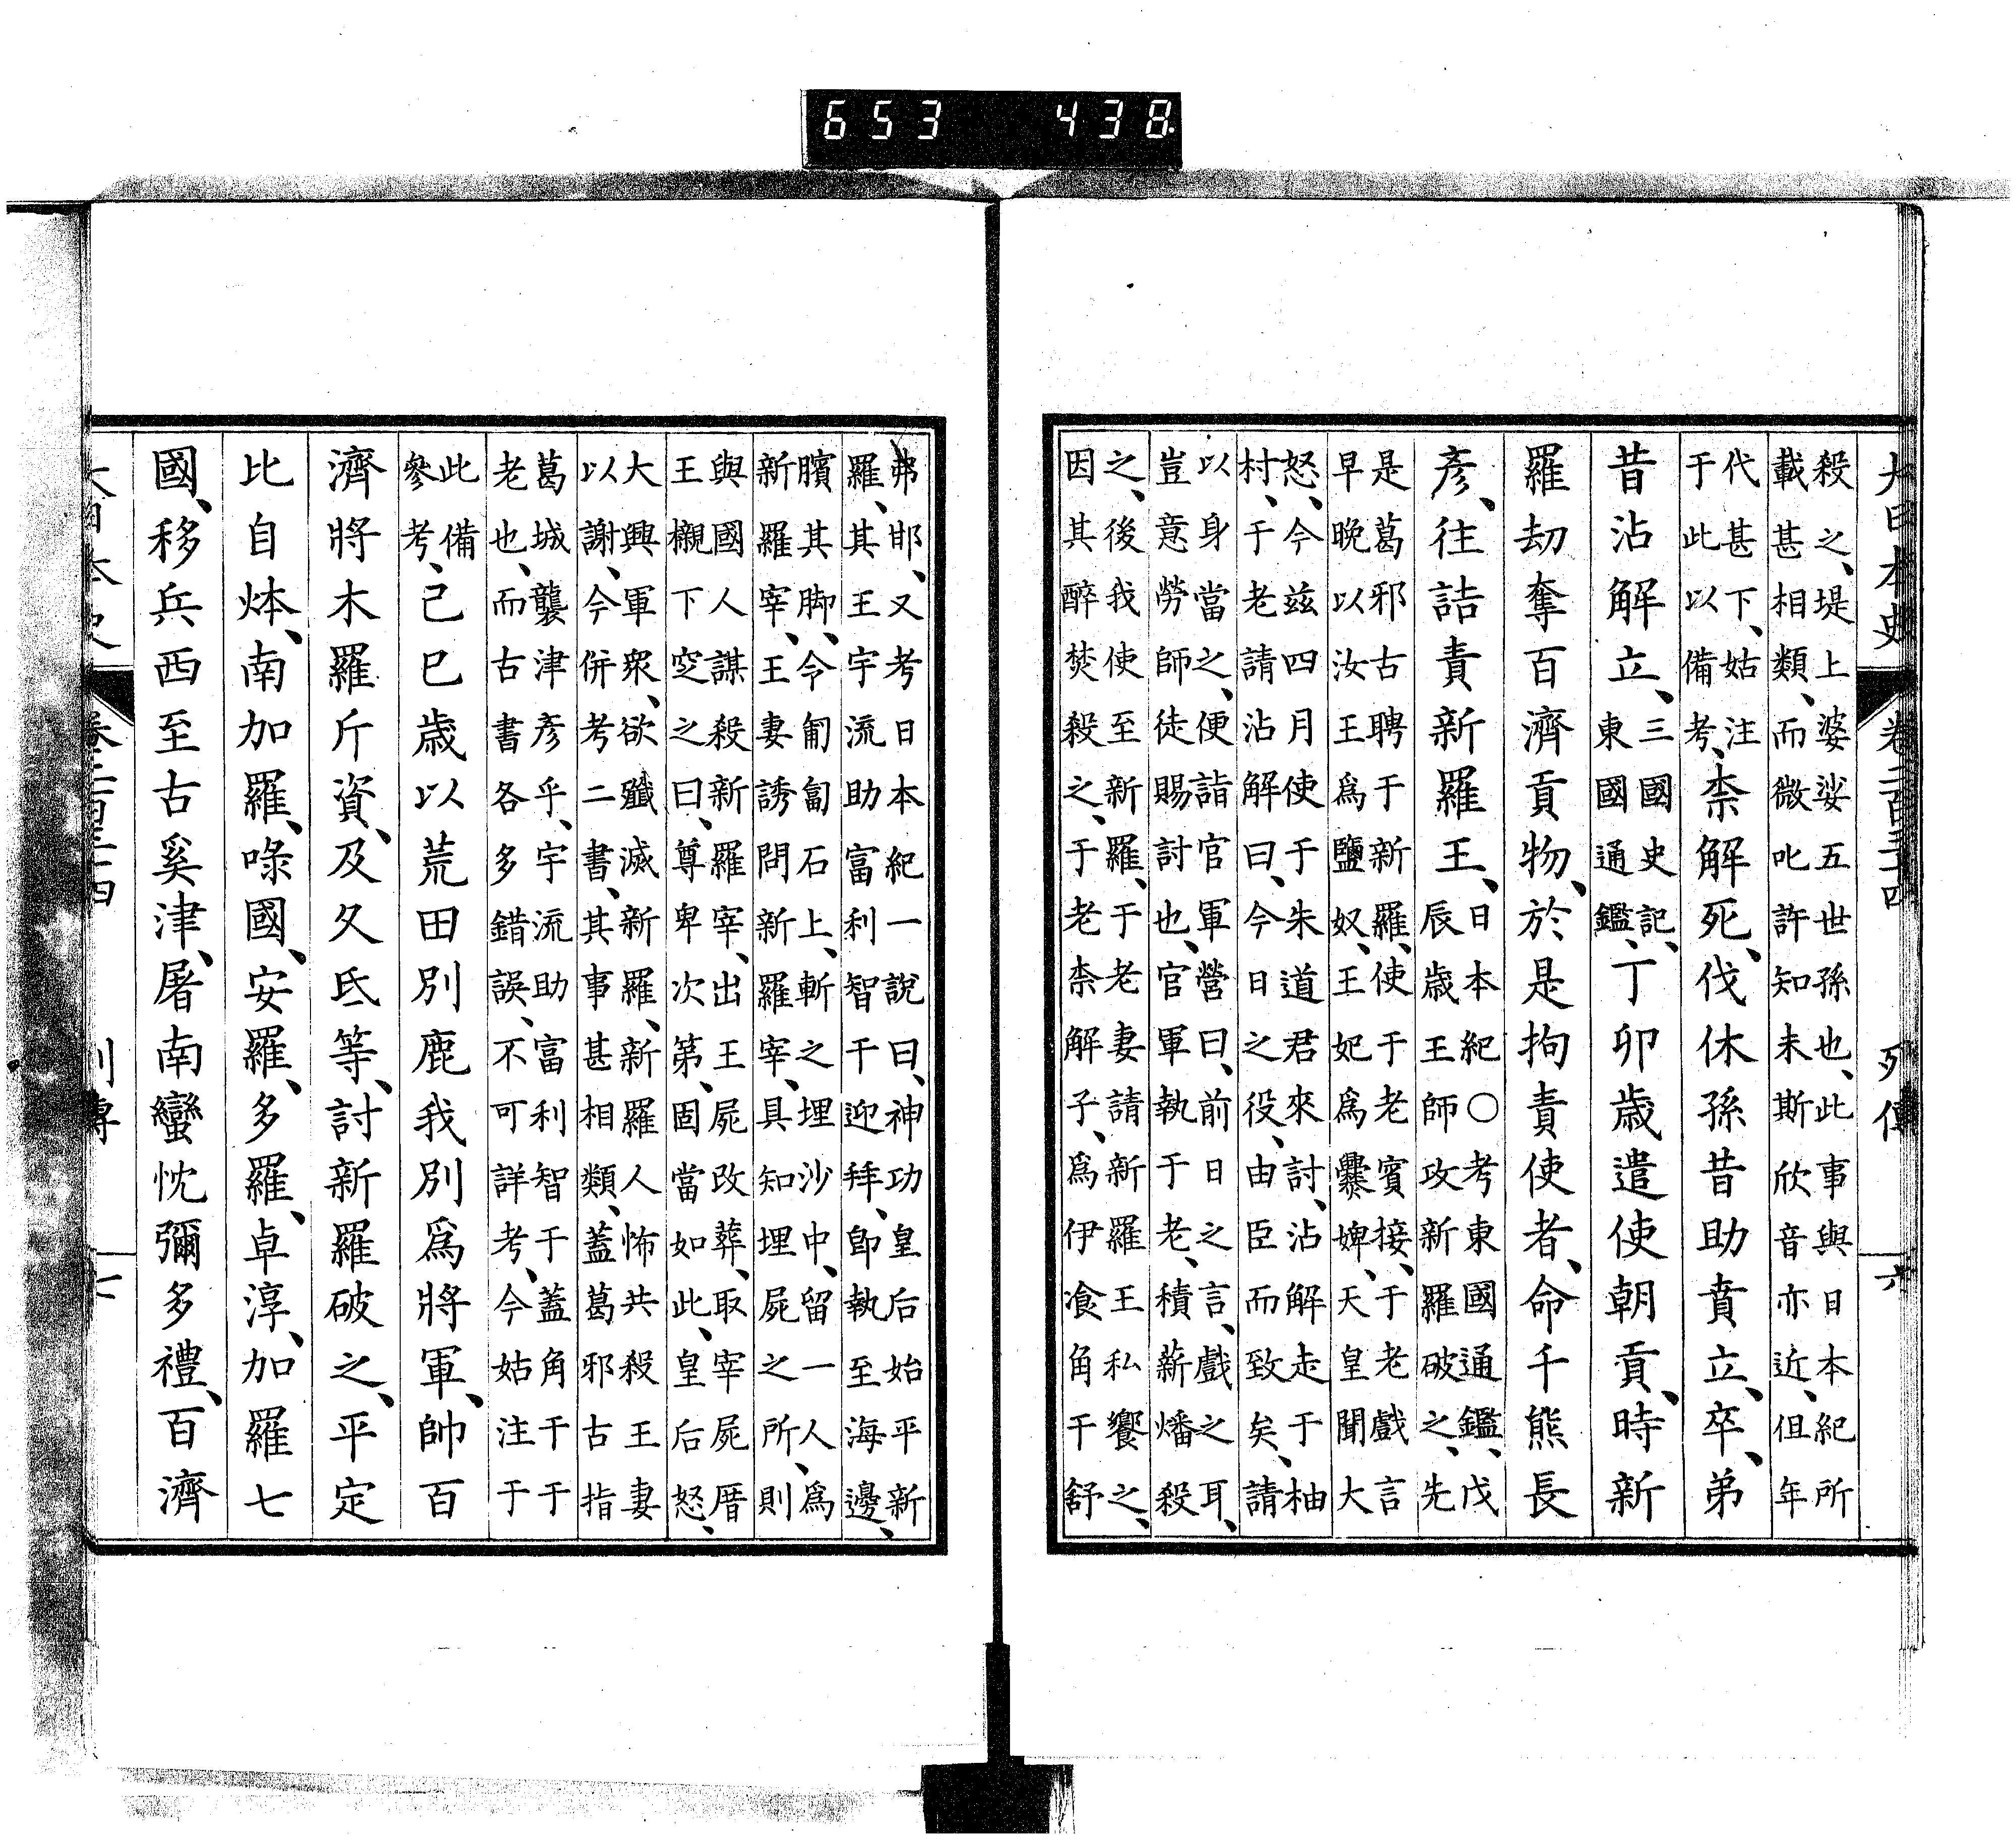 653 438
大日本史 卷二百三十四 列傳 六
殺之、堤上婆娑五世孫也、此事與日本紀所
載甚相類、而微叱許知未斯欣音亦近、但年
代甚下、姑注
于此以備考、柰解死、伐休孫昔助賁立、卒、弟
昔沾解立、三國史記、
東國通鑑、丁卯歲遣使朝貢、時新
羅劫奪百濟貢物、於是拘責使者、命千熊長
彦、往詰責新羅王、日本紀○考東國通鑑、戊
辰歲王師攻新羅破之、先
是葛邪古聘于新羅、使于老賓接、于老戲言
早晚以汝王爲鹽奴、王妃爲爨婢、天皇聞大
怒、今茲四月使于朱道君來討、沾解走于柚
村、于老請沾解曰、今日之役、由臣而致矣、請
以身當之、便詣官軍營曰、前日之言、戲之耳、
豈意勞師徒賜討也、官軍執于老、積薪燔殺
之、後我使至新羅、于老妻請新羅王私饗之、
因其醉焚殺之、于老柰解子、爲伊飡角干舒
弗邯、又考日本紀一說曰、神功皇后始平新
羅、其王宇流助富利智干迎拜、卽執至海邊、
臏其脚、令匍匐石上、斬之埋沙中、留一人、爲
新羅宰、王妻誘問新羅宰、具知埋屍之所、則
與國人謀殺新羅宰、出王屍改葬、取宰屍厝
王櫬下空之曰、尊卑次第、固當如此、皇后怒、
大興軍衆、欲殲滅新羅、新羅人怖共殺王妻
以謝、今併考二書、其事甚相類、蓋葛邪古指
葛城襲津彦乎、宇流助富利智于蓋角干于
老也、而古書各多錯誤、不可詳考、今姑注于
此備
參考、己巳歲以荒田別鹿我別爲將軍、帥百
濟將木羅斤資、及久氐等、討新羅破之、平定
比自㶱、南加羅、㖨國、安羅、多羅、卓淳、加羅七
國、移兵西至古奚津、屠南蠻忱彌多禮、百濟
大日本史 卷二百三十四 列傳 七